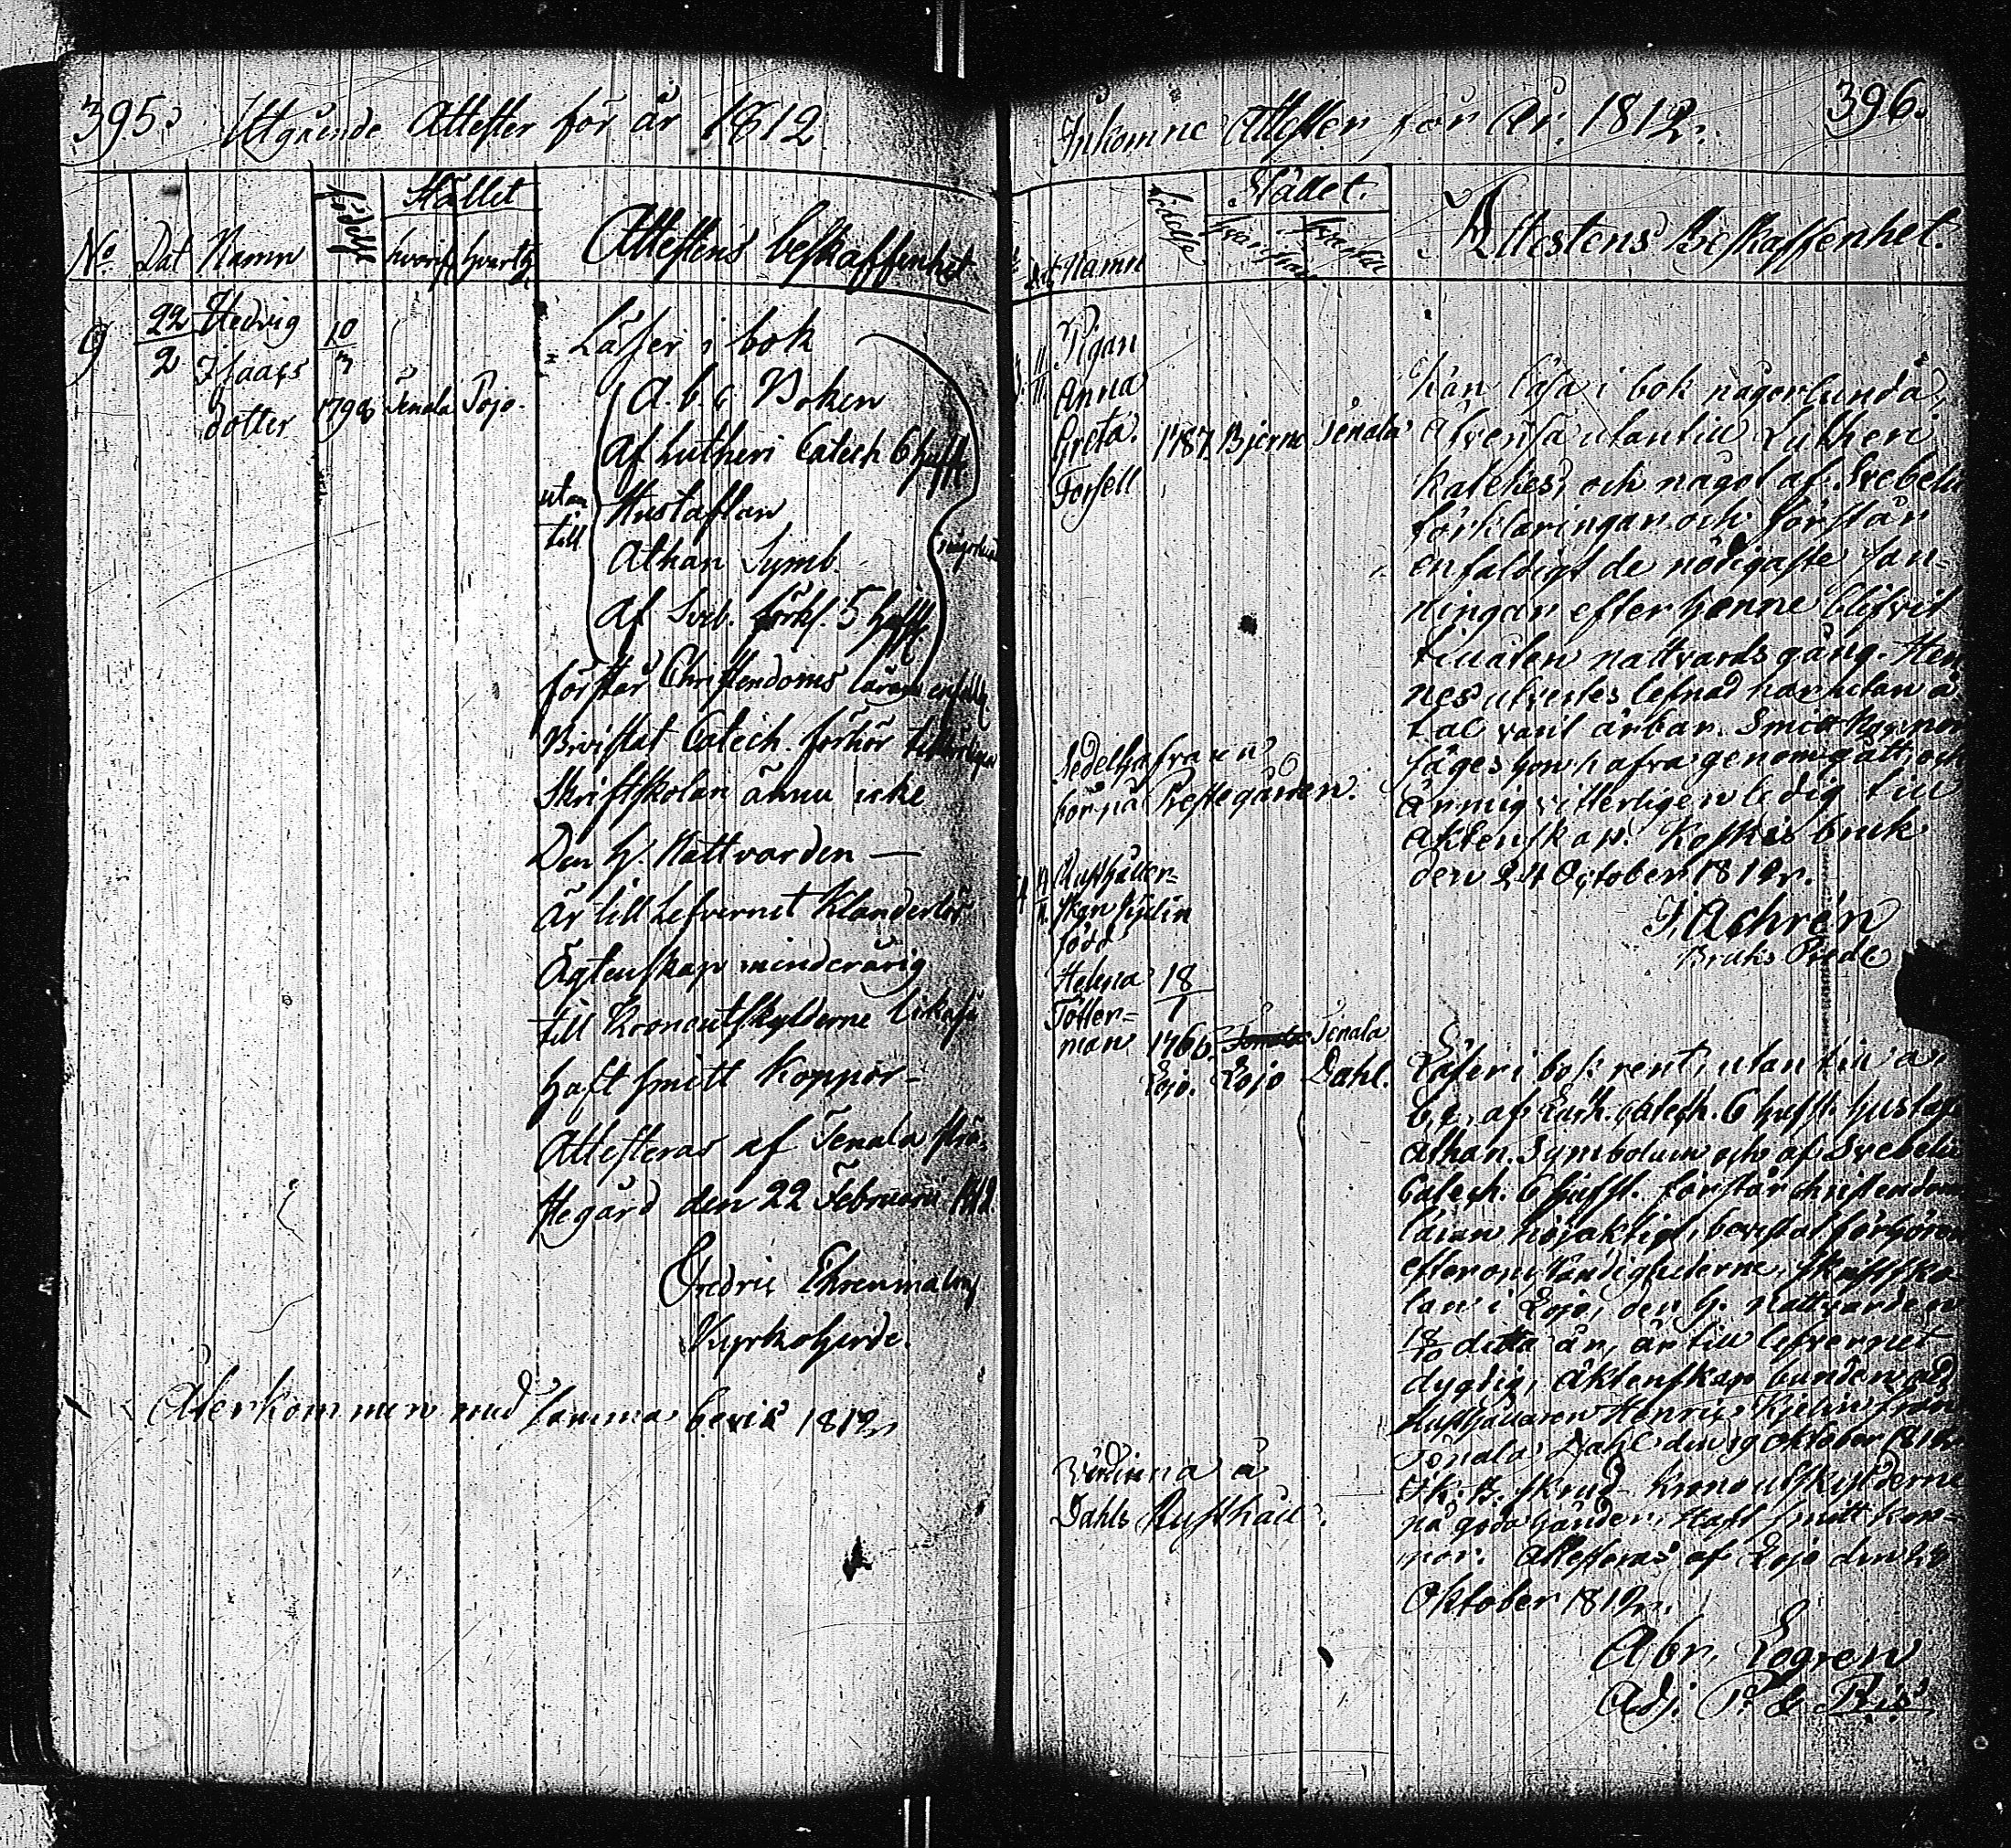 395.
Utgående Attester för år 1812
No
Dat
Namn
födelse
Stället
hvarifr
hvartil
Attestens beskaffenhet
9
22
2
Hedvig
Isaacs
dotter
10
3
1798
Tenala
Pojo.
Läser i bok
A. b. c Boken
Af Lutheri Catech 6 huf
utan
till
Hustaflan
Athan Symb.
Af Sveb. förkl. 5 huf
någorlund
förstår Christendoms läran enfald
Bivistat Catech. förhör
Skriftskolan ännu icke
Den H. Nattvarden —
Är till Lefvernet Klanderlös
Ägtenskap minderårig
till Kronoutskylderne likaså
Haft Smitt Koppor-
Attesteras af Tenala Prä-
stegård den 22 Februarii 1812.
Fredric Ehrenmalm
Kyrkoherde.
Återkommen med samma bevis 1812
396.
Inkomne Attester för År. 1812.
Namn
födelse
Stället.
Attestens Beskaffenhet.
11
11
Pigan
Anna
Greta
Forsell
1787.
Bjerno
Tenala
Kan läsa i bok någorlunda,
äfvensa utantill Lutheri
Katekes, och något af Svebelii
förklaringar och förstår
enfaldigt de nödigaste san-
ningar efter henne blifvit
tillåten nattvardsgång. Hen
nes utvertes lefnad har utan å
tal varit ärbar. Smittkoppor
säges hon hafva genomgått, och
är mig vitterligen ledig till
äktenskap. Koskis bruk
den 24 October 1812.
J. Achrén
Bruks Predk
bor på Prestegården.
Rusthåller-
skan Kjelin
född
Helena
Tötter-
man
18
1
1766.
Lojo.
Lojo
Tenala
Dahl.
Läser i bok rent, utan till a.
b. c. af Luth. Catech. 6 hufst. hustafl.
Athan. Symbolum och af Svebelii
Catech. 6 hufst. förstår christendom
läran nöjaktigt, bevistat förhören
efter omständigheterne, skriftsko
lan i Lojo, den H. Nattvarden
18/10 detta år, är till lefvernet
dygdig, Äktenskap bunden med
Rusthållaren Henric Kjelin från
Tenala Dahl den 19 oktober 1812
Kronoutskylderne
på goda händer. Haft smitt kop-
por. Attesteras af Lojo den
Oktober 1812.
Abr. Legren
Adj. P.
Värdinna å
Dahls Rusthåll.